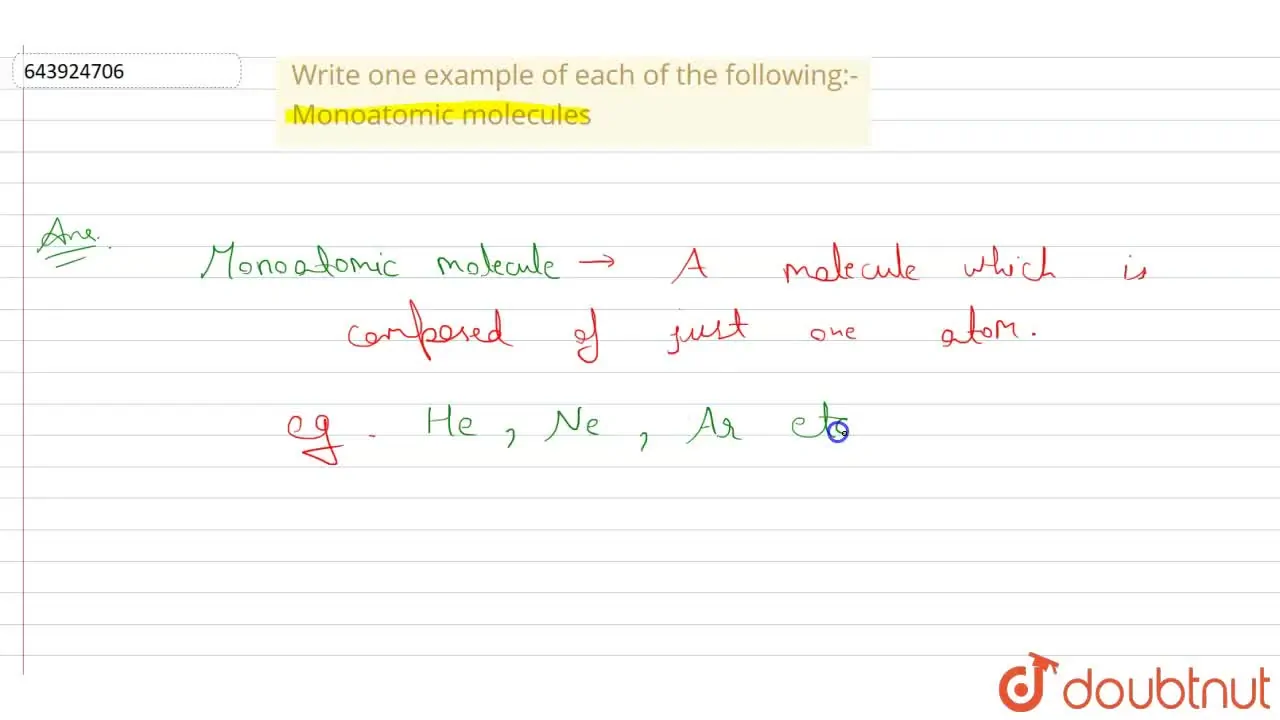 643924706
Write one example of each of the following:-
Monoatomic molecules
Ans.
Monoatomic molecule → A molecule which is
composed of just one atom.
eg. He, Ne, Ar etc
doubtnut